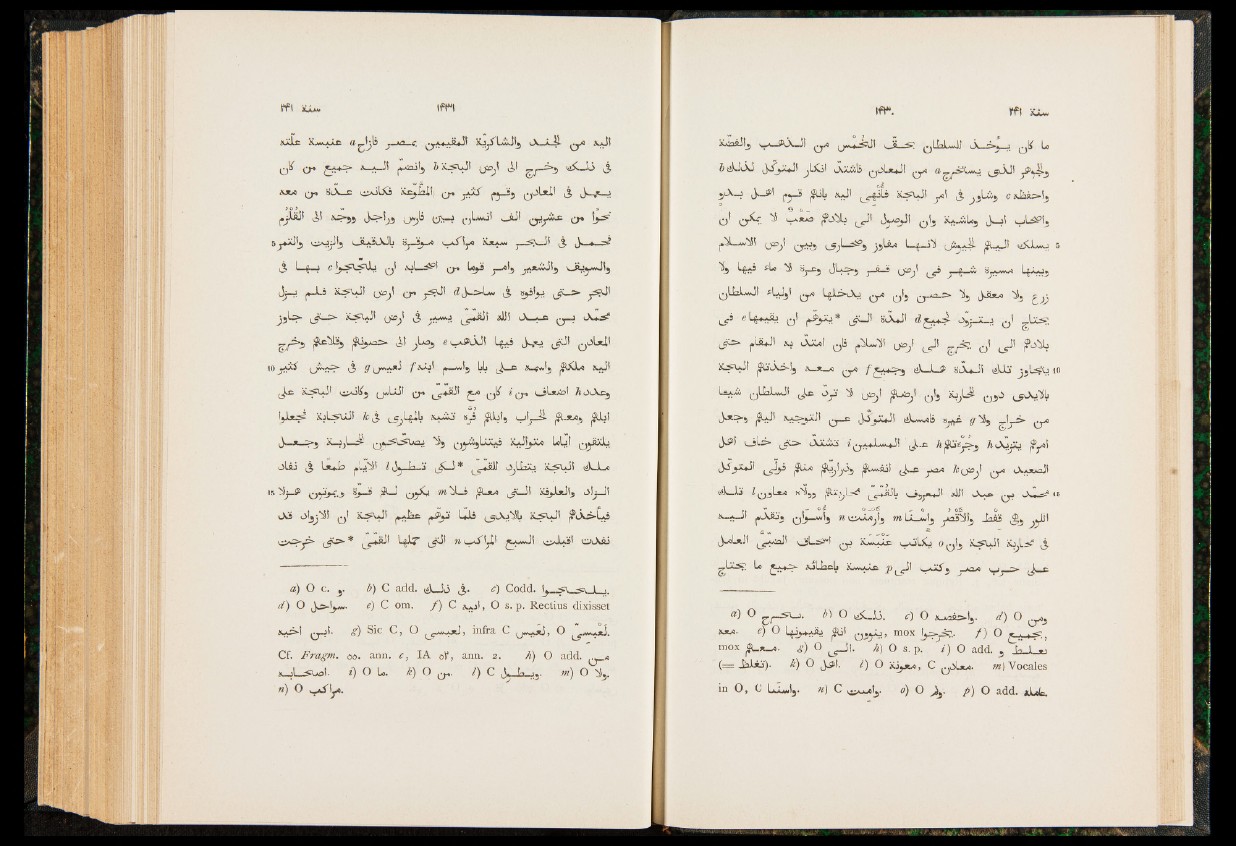 سنة ٢٤١ ١٤٣٠
ما كان يوخذ للسلطان بحقّ الخُمس من الذهب والفضّة
والجوهر الذى يستخرج a من المعادن فاشتدّ انكار المتوكل لذلك b
واحفظه c وشاور فى امر البجة فأُنهى اليه بانهم قوم اهل بدو
واصحاب ابل وماشية وان الوصول الى بلادهم صَعْبٌ لا يمكن ان
5 يسلك اليهم الجيوش لانها مفاوز وصحارى وبين ارض الاسلام
وبينها مسيرة شهر فى ارض قفر وجبال وعرة لا ماء فيها ولا
زرع ولا معقل ولا حصن وان من يدخلها من اولياء السلطان
يحتاج ان يتزوّد لجميع d المدة التى *يتوهّم ان يقيمها e فى
بلادهم الى ان يخرج الى ارض الاسلام فان امتدّ به المقام حتى
10 يتجاوز تلك المدة هلك وجميع f من معه واخذتهم البجة
بالايدى دون المحاربة وان ارضهم ارض لا تردّ على السلطان شيئا
من خراج ولا g غيره فامسك المتوكل عن التوجيه اليهم وجعل
امرهم يتزيّد h وجرءتهم h على المسلمين i تشتدّ حتى خاف اهل
الصعيد من ارض k مصر على انفسهم وذراريهم منهم فولّى المتوكل
15 محمد بن عبد الله المعروف بالقُمّىّ محاربتهم وولّاه معاون l تلك
الكور وهى قفط والأقصر واسنا m وأرمنت n وأسوان وتقدّم اليه
فى محاربة البجة وان o يكاتب عنبسة بن اسحاق الضبّى العامل
على حرب مصر وكتب الى p عنبسة باعطائه جميع ما يحتاج
a) O يستخرج. b) O بذلك. c) O واحفضه. d) O ومن
معه. e) O , mox يخرجوا. f) O بجميع,
mox معهم. g) O الى. h) O s. p. i) O add. و
(= ). k) O اهل. l) O معونة, C معادن. m) Vocales
in O, C واسنا. n) C. o) O. p) O add. عامله.
سنة ٢٤١ ١٤٣١
اليه من الجند والشاكرية المقيمين بمصر فازاح a عنبسة علّته
فى ذلك وخرج الى ارض البجة b وانضمّ اليه جميع من كان
يعمل فى المعادن وقوم كثير من المطّوّعة فكانت عدة من معه
نحوًا من عشرين الف انسان بين فارس وراجل ووجّه الى القلزم
5 فحمل فى البحر سبعة مراكب موقرة بالدقيق والزيت والتمر
والسويق والشعير وامر قوما من اصحابه ان يلجّجوا c بها فى
البحر حتى يوافوه فى ساحل d البحر من ارض البجة فلم يزل
محمّد بن عبد الله القمّىّ يسير فى ارض البجة حتى جاوز
المعادن التى يعمل فيها الذهب e وصار الى حصونهم وقلاعهم وخرج
10 اليه ملكهم واسمه على بابا واسم ابنه f لعيس g فى جيش كثير
وعدد h اضعاف من i كان مع القمّى من الناس وكانت البجة على
ابلهم ومعهم الحراب وابلهم فُرّه تشبه بالمهارى k فى النجابة فجعلوا
يلتقون ايّاما متوالية فيتناوشون ولا يصحّحون المحاربة وجعل
ملك البجة يتطارد القمّى *لكى تطول l الايّام طمعًا فى نفاد
15 الزاد والعلوفة التى معهم فلا m يكون لهم قوّة ويموتون هزلا
فياخذهم البجة بالايدى فلمّا توهّم عظيم البجة ان الازواد قد
نفدت اقبلت السبع المراكب n التى حملها القمّى *حتى خرجت
a) O c. و. b) C add. فى ذلك. c) Codd. يلحجوا.
d) O سواحل. e) C om. f) C ابيه, O s. p. Rectius dixisset
ابن اخيه. g) Sic C, O, infra C لعيس, O.
Cf. Fragm. ٥٥٠ ann. c, IA ٥٢, ann. 2. h) O add. من
اصحابه. i) O ما. k) O من. l) C ويطول. m) O ولا.
n) O مراكب.